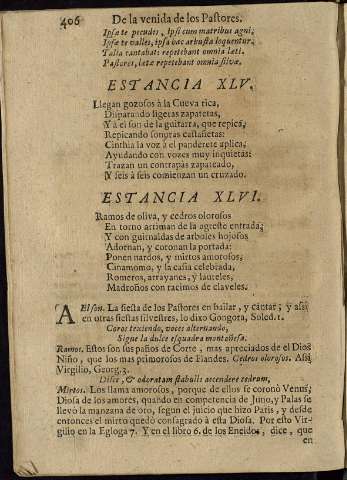 406 De la venida de los Pastores.
Ipsæ te pecudes, Ipsi cum matribus agni;
Ipsæ te valles, ipsa hac arbusta loquentur.
Talia cantabat: repetebant omnia læti.
Pastores, lætæ repetebant omnia silvæ.
ESTANCIA XLV.
Llegan gozosos à la Cueva rica,
Disparando ligeras zapatetas,
Y à el son de la guitarra, que repica,
Repicando sonoras castañetas:
Cinthia la voz à el panderete aplica,
Ayudando con vozes muy inquietas:
Trazan un contrapàs zapateado,
Y seis à seis comienzan un cruzado.
ESTANCIA XLVI.
Ramos de oliva, y cedros olorosos
En torno arriman de la agreste entrada;
Y con guirnaldas de arboles hojosos
Adornan, y coronan la portada:
Ponen nardos, y mirtos amorosos;
Cinamomo, y la casia celebrada,
Romeros, arrayanes, y laureles,
Madroños con racimos de claveles.
A El son. La fiesta de los Pastores en bailar, y cantar; y assi
en otras fiestas silvestres, lo dixo Gongora, Soled. 1.
Coros texiendo, voces alternando,
Sigue la dulce esquadra montañesa.
Ramos. Estos son sus paños de Corte, mas apreciados de el Dios
Niño, que los mas primorosos de Flandes. Cedros olorosos. Assi
Virgilio, Georg. 3.
Disce, & odoratam stabulis accendere cedrum,
Mirtos. Los llama amorosos, porque de ellos se coronò Venus,
Diosa de los amores, quando en competencia de Juno, y Palas se
llevò la manzana de oro, segun el juicio que hizo Paris, y desde
entonces el mirto quedò consagrado à esta Diosa. Por esto Vir-
gilio en Egloga 7. Y en el libro 6. de los Eneidos, dice, que
en